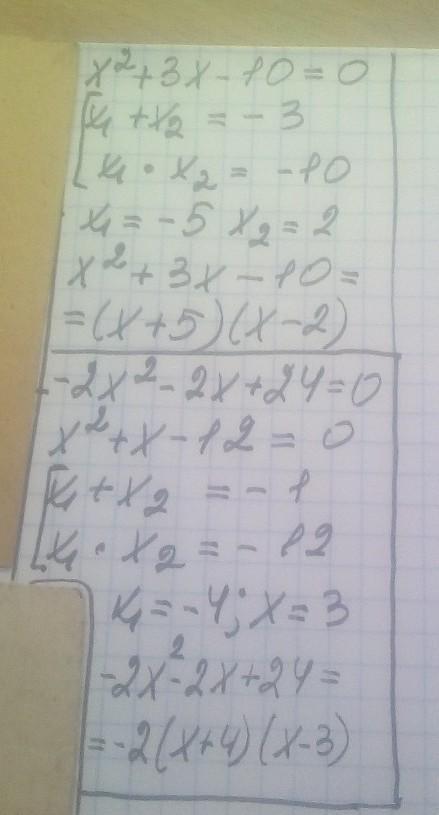 x²+3x-10=0
[x₁+x₂ = -3
[x₁·x₂ = -10
x₁=-5 x₂=2
x²+3x-10=
=(x+5)(x-2)
-2x²-2x+24=0
x²+x-12=0
[x₁+x₂ = -1
[x₁·x₂ = -12
x₁=-4; x=3
-2x²-2x+24=
=-2(x+4)(x-3)